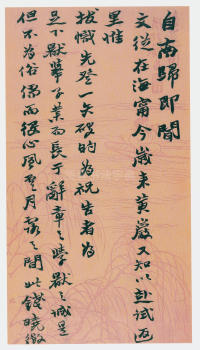 自南歸即聞
文從在海甯今歲來黃巖又知以赴試返
里惟
拔幟先登一矢破的為祝告者為
足下猷輩子業而長于辭章之學獻之誠是
但不為俗儒而從心風雲月露之間此錢曉徵